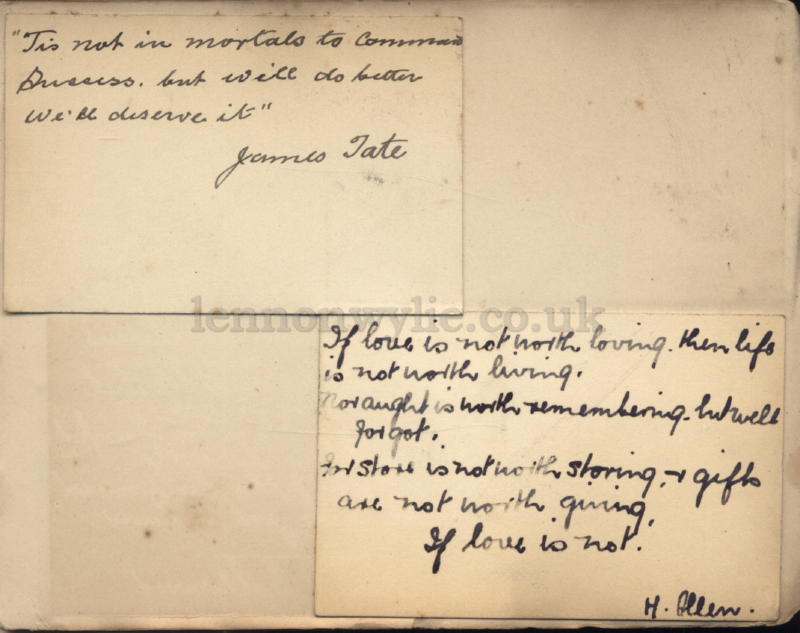 "Tis not in mortals to Command
Success. but we'll do better
We'll deserve it"
James Tate
lennonwylie.co.uk
If love is not worth loving. then life
is not worth living.
Nor aught is worth remembering. but well
forgot.
For store is not worth storing, & gifts
are not worth giving,
If love is not.
H. Allen.